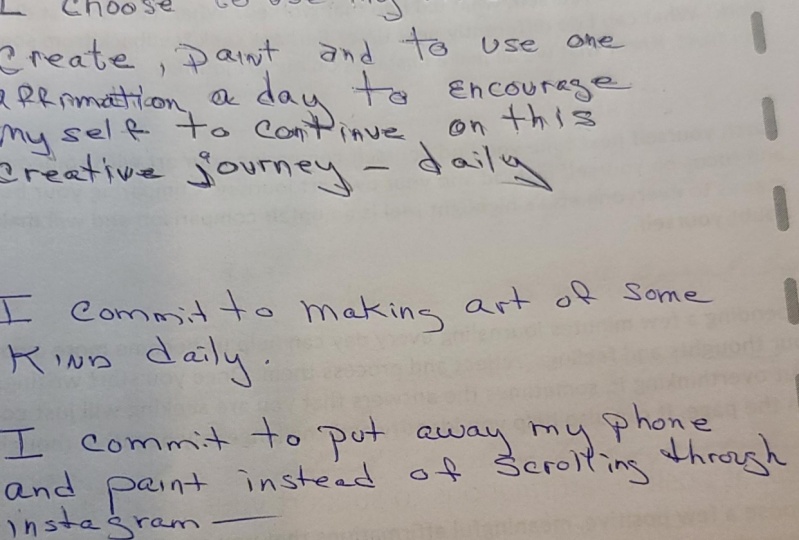 I choose to use my
create, paint and to use one
affirmation a day to encourage
my self to continue on this
creative journey - daily
I commit to making art of some
KIND daily.
I commit to put away my phone
and paint instead of scrolling through
instagram —